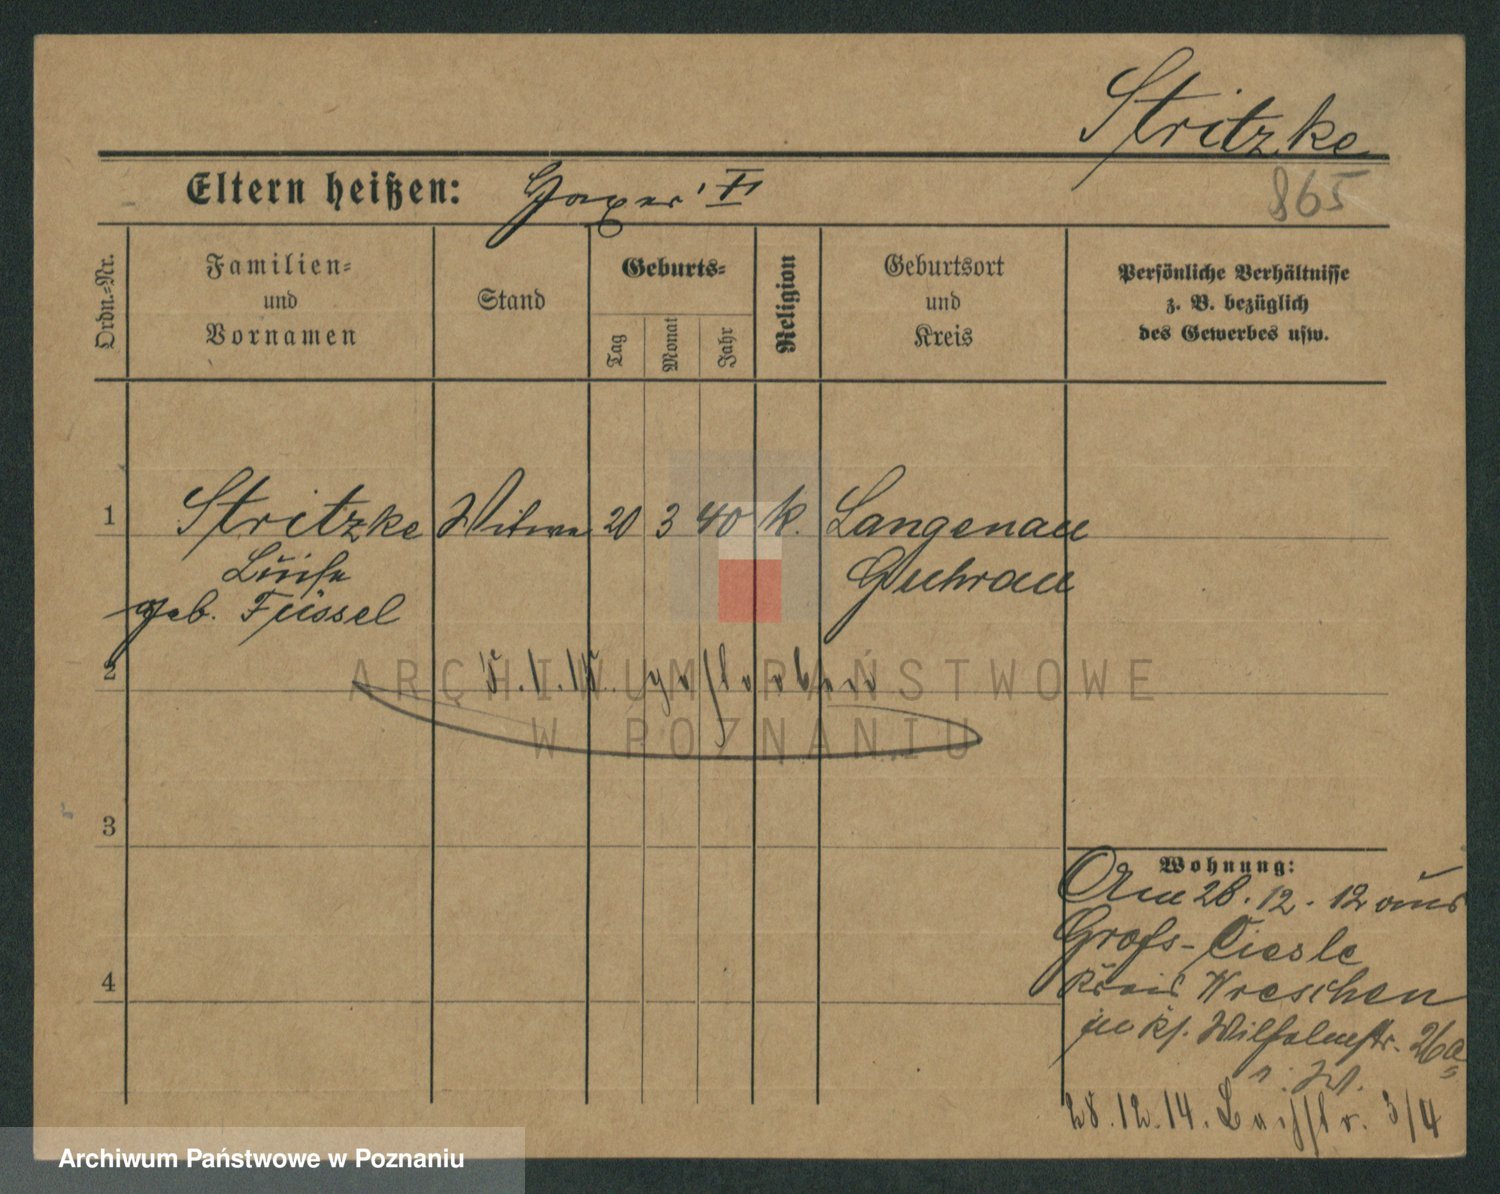 Stritzke
865
Eltern heißen:
Ordn.=Nr.
Familien=
und
Vornamen
Stand
Geburts=
Tag
Monat
Jahr
Religion
Geburtsort
und
Kreis
Persönliche Verhältnisse
z. B. bezüglich
des Gewerbes usw.
1 Stritzke Witwe 20 3 40 k. Langenau
Luise Guhrau
geb. Füssel
2 5.1.15. gestorben
ARCHIWUM PAŃSTWOWE
W POZNANIU
3
4
Wohnung:
Am 28.12.12 aus
Groß-Ciesle
Kreis Wreschen
Wilhelmstr. 26a
28.12.14. 3/4
Archiwum Państwowe w Poznaniu